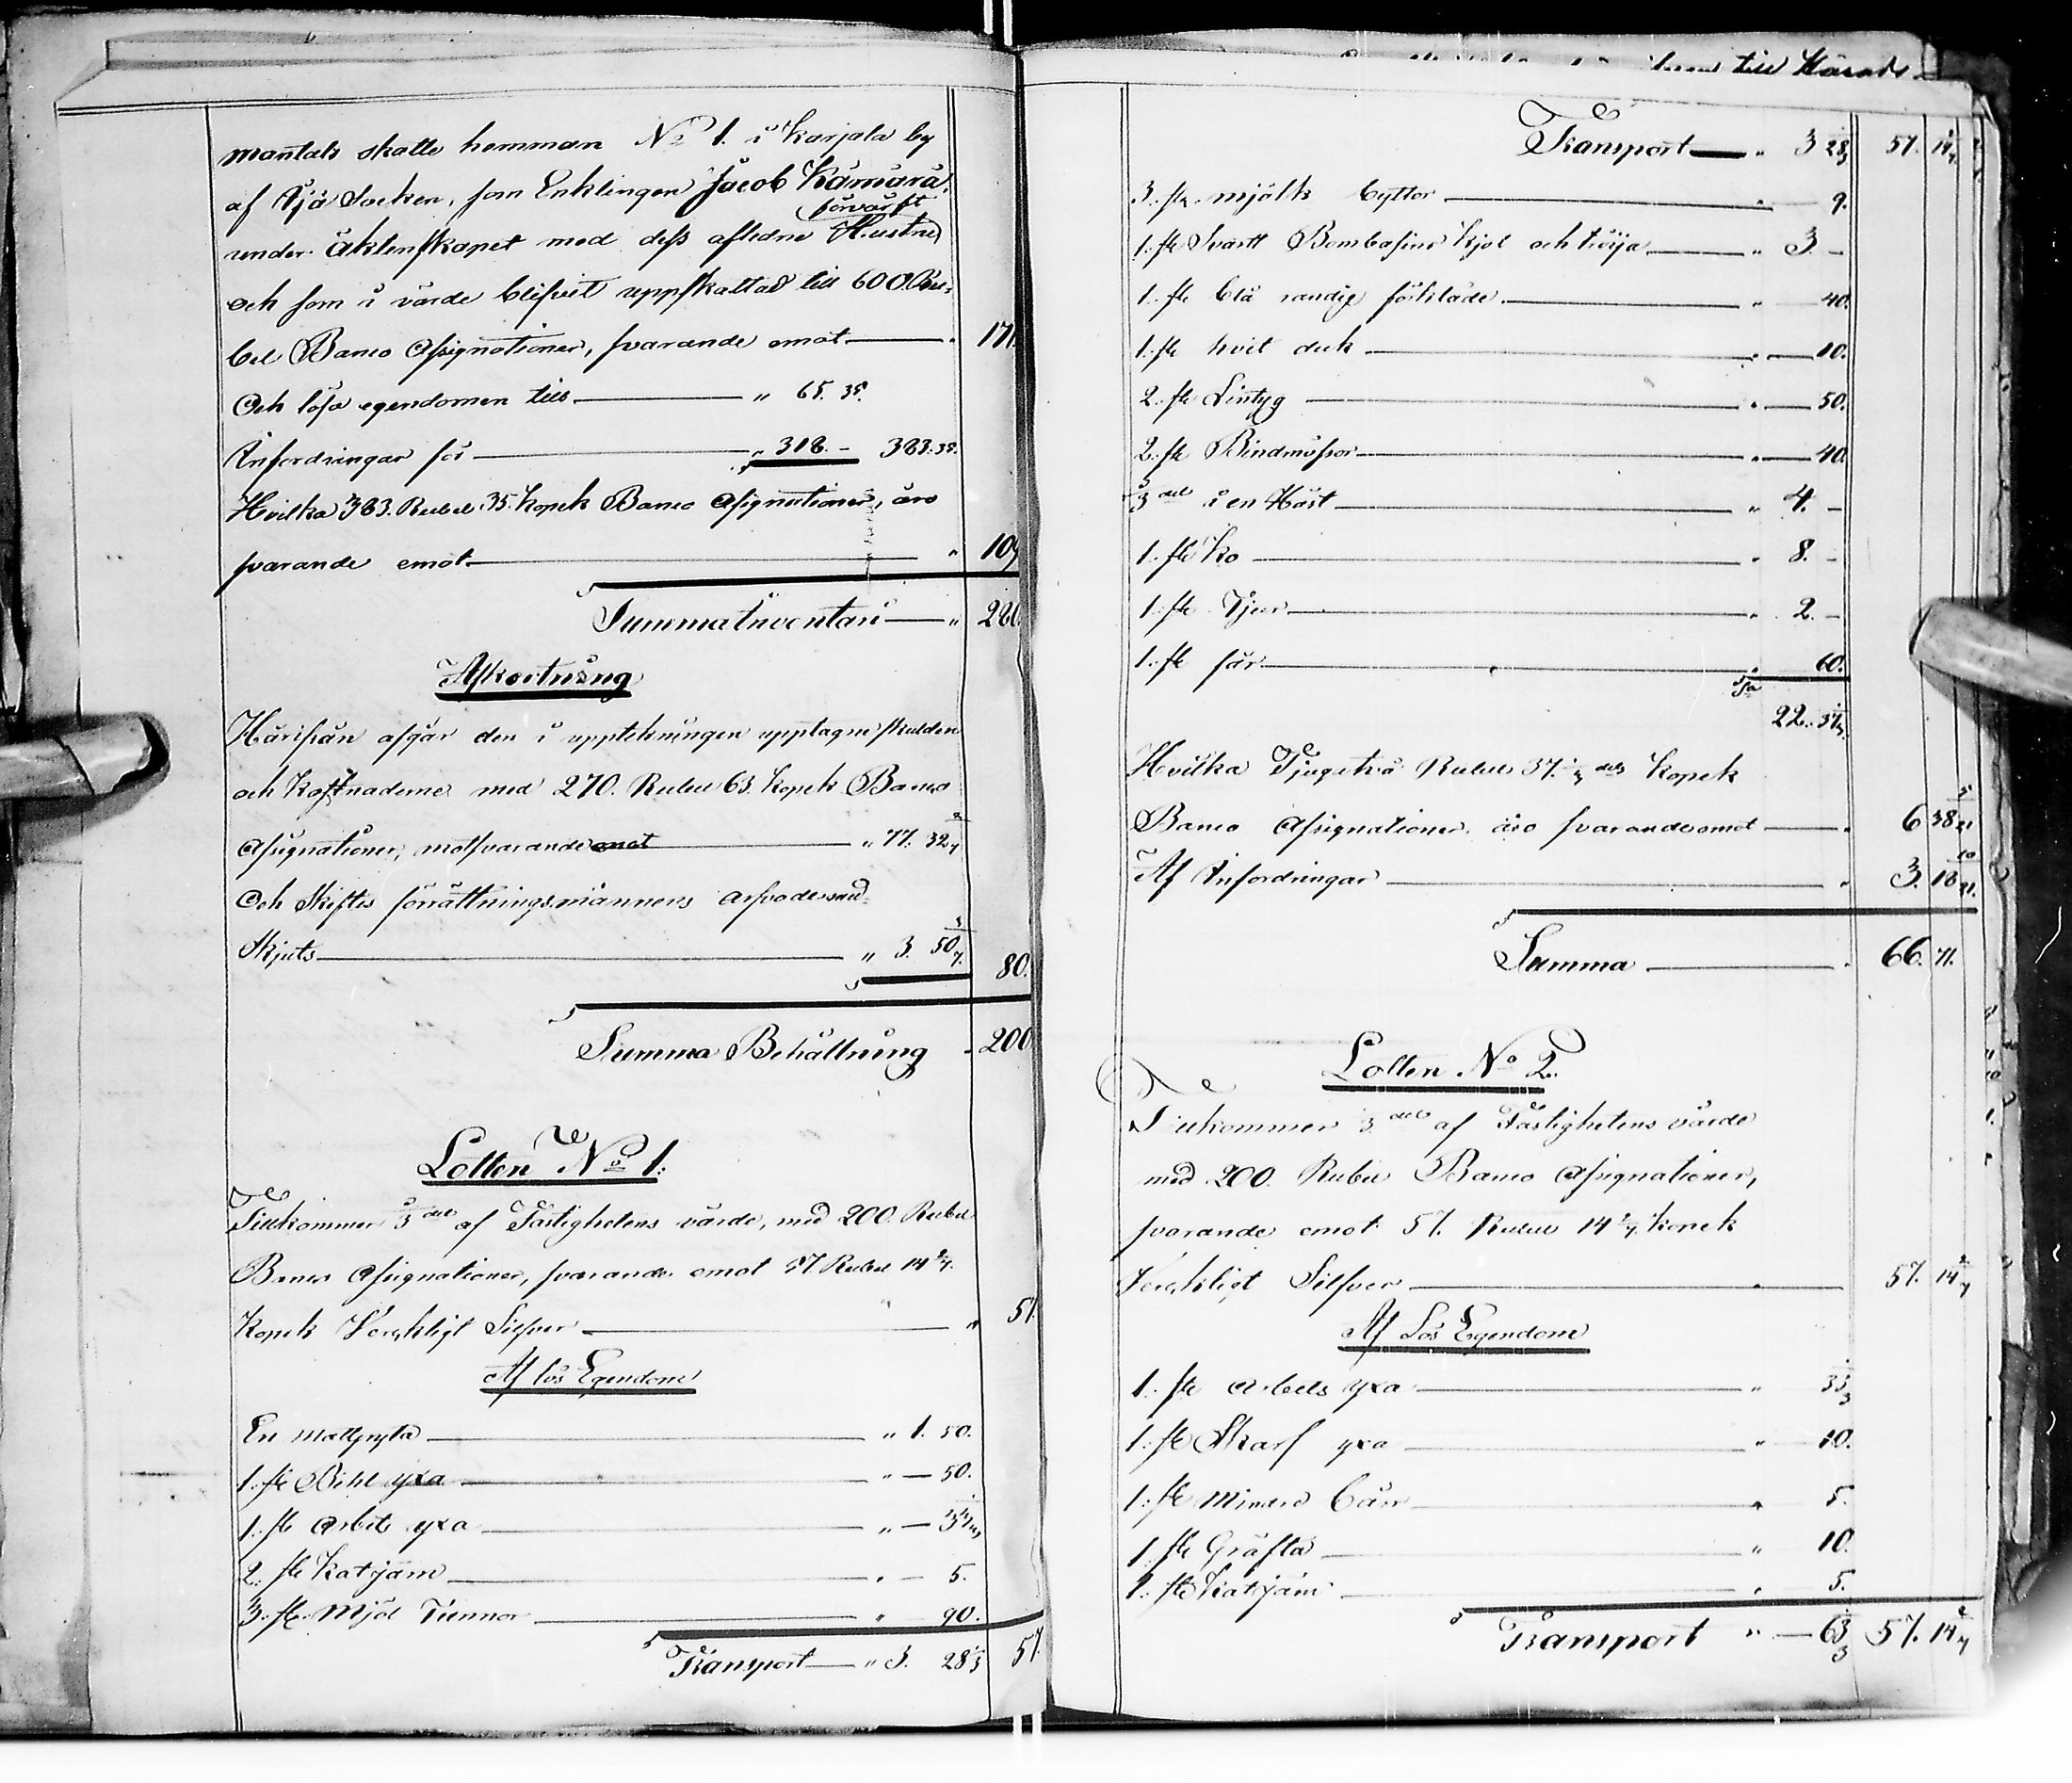 mantals skatte hemman No 1. i Karjala by
af Socken, som Enklingen Jacob Kämärä
förvärft
under äktenskapet med dess aflidne Hustru
och som i värde blifvit uppskattad till 600. Ru-
bel Banco Assignationer, svarande emot — " 171.
Och lösa egendomen till — " 65. 35.
Infordringar för — " 318. – 383. 35.
Hvilka 383. Rubel 35. Kopek Banco Assignationer, äro
svarande emot — " 109
Summa Inventarii — " 280.
Afkortning
Härifrån afgår den i uppteckningen upptagne skulden
och kostnaderne med 270. Rubel 63. Kopek Banco
Assignationer, motsvarande emot — " 77. 32 2/7
Och Skiftes förrättningsmännens arfvode med
Skjuts — " 3. 50 5/7. 80.
Summa Behållning . 200
Lotten No 1:
Tillkommer 1/3 del af Fastighetens värde, med 200. Rubel
Banco Assignationer, svarande emot 57. Rubel 14 2/7.
Kopek Verkligt Silfver — " 57.
Af lös Egendom
En mattgryta — " 1. 50.
1. st Bihl yxa — " — 50.
1. st Arbets yxa — " — 33 1/3
2. st Katjärn — " — 5.
3. st. Mjöl Tunnor — " 90.
Transport — " 3. 28 1/3 57.
till Härads
Transport — " 3 28 1/3 57. 14 2/7
3. st. mjölk byttor — " — 9.
1. st Svartt Bombasins kjol och tröja — " 3. –
1. st blå randig förkläde — " 40.
1. st hvit duk — " — 10.
2. st Lintyg — " — 50.
2. st Bindmössor — " — 40.
1/3 del i en Häst — " 4. –
1. st Ko — " 8. –
1. st Tjur — " 2. –
1. st får — " 60.
Sa 22. 37 1/3.
Hvilka Tjugetvå Rubel 37. 1/3 dels Kopek
Banco Assignationer äro svarande emot — " 6 38 5/21
Af Infordringar — " 3. 18 10/21.
Summa — . 66. 71.
Lotten No 2.
Tillkommer 1/3 del af Fastighetens värde
med 200. Rubel Banco Assignationer,
svarande emot 57. Rubel 14 2/7. Kopek
Verkligt Silfver — " 57. 14 2/7
Af Lös Egendom
1. st Arbets yxa — " 33 1/3
1. st Skarf yxa — " 10.
1. st mindre — " 5.
1. st Gräfta — " 10.
1. st Katjärn — " 5.
Transport " — 63 1/3 57. 14 2/7